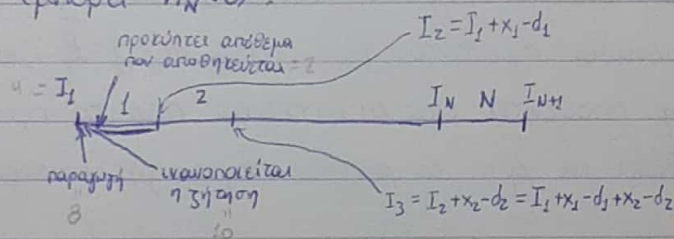 I₂ = I₁ + x₁ - d₁
προκύπτει απόθεμα
που αποθηκεύεται = 2
4 = I₁ 1 2 I_N N I_{N+1}
παραγωγή
8
ικανοποιείται
η ζήτηση
10
I₃ = I₂ + x₂ - d₂ = I₁ + x₁ - d₁ + x₂ - d₂